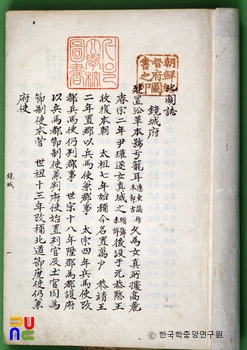 朝鮮總
督府圖
書之印
北關誌
鏡城府
建置沿革本號于籠耳 久爲女眞所據高麗
睿宗二年尹瓘逐女眞 後沒于元恭愍王
收復本朝 太祖七年始稱今名置萬戶 恭靖王
二年置郡以兵馬使兼郡事 太宗四年兵馬使改
都兵馬使仍判郡事 世宗十八年陞郡爲都護府
以兵馬都節制使兼判府使始置判官及土官因爲
節制使本營 世祖十三年改稱北道節度使仍兼
府使
鏡城
一
ⓒ 한국학중앙연구원